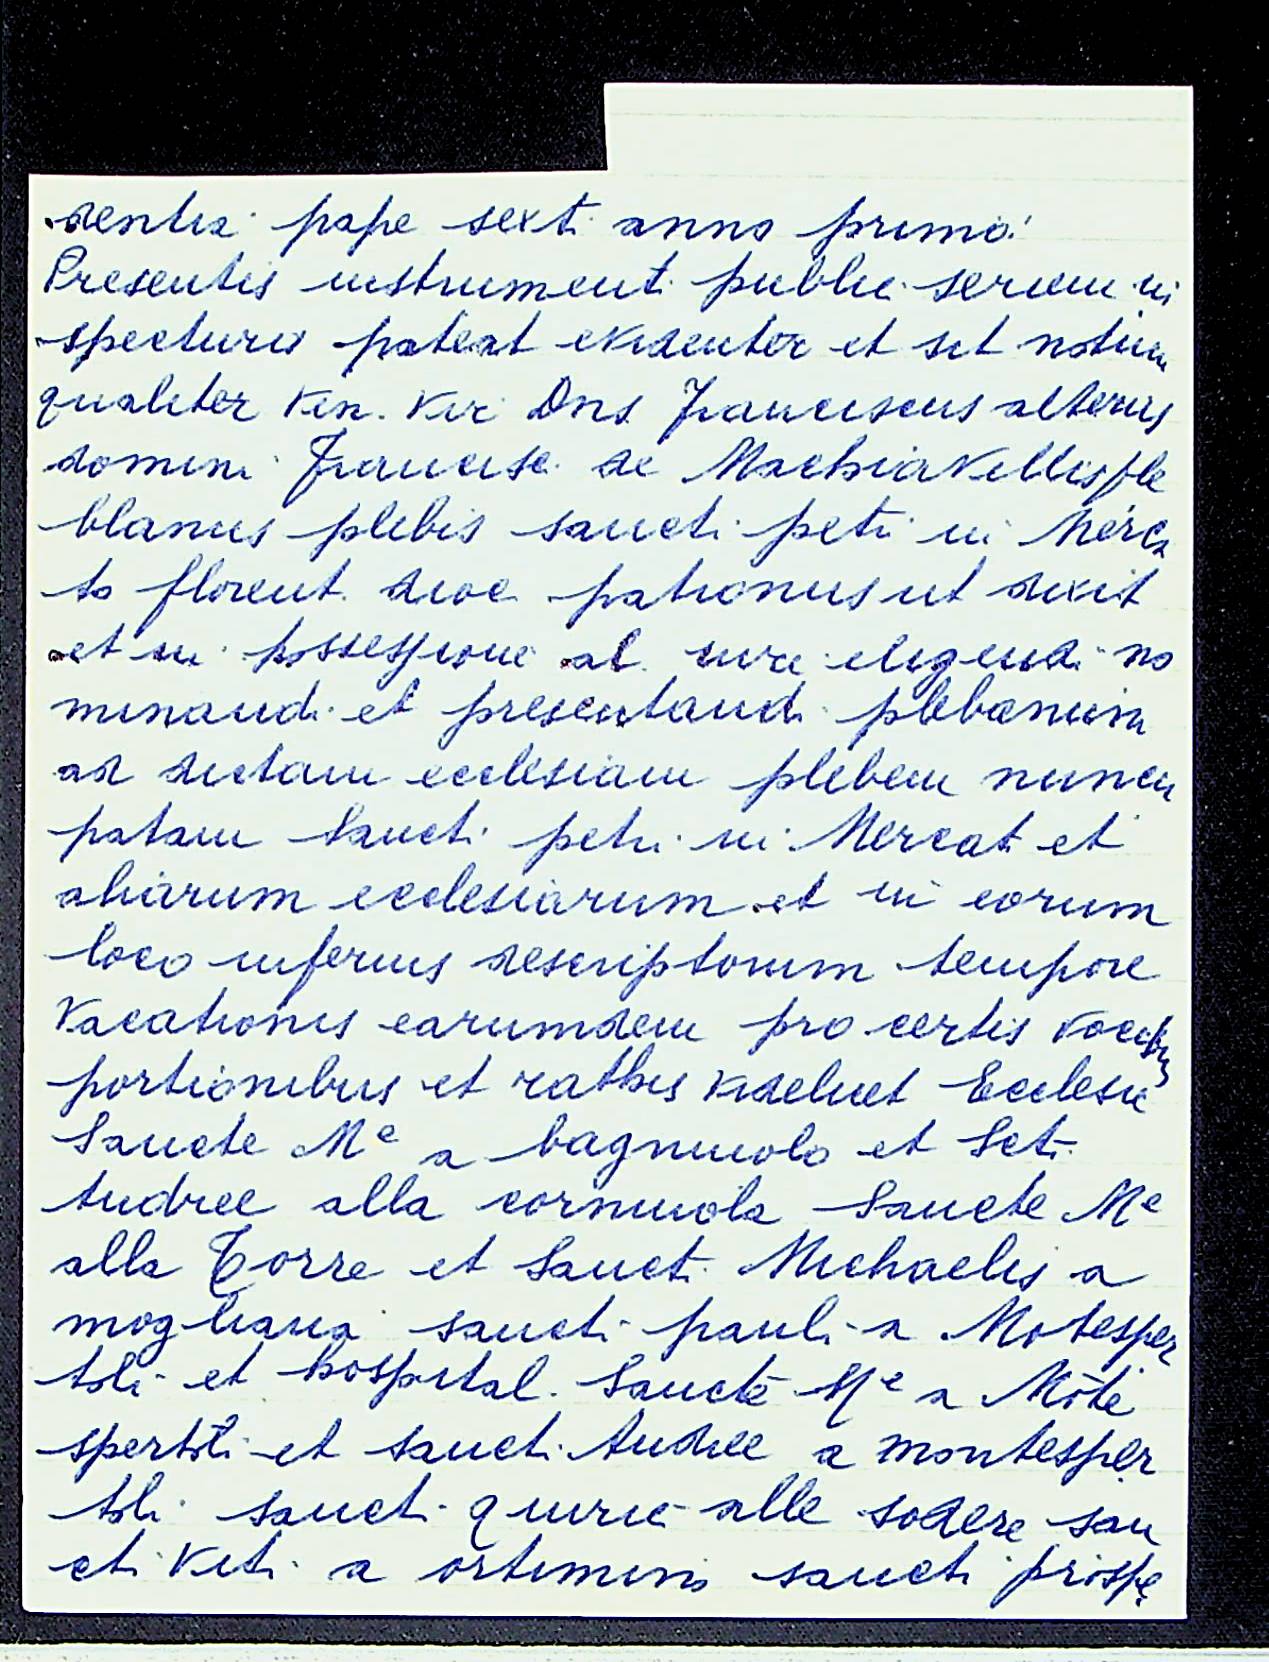 dentia pape sexti anno primo.
Presentis instrumenti publici seriem in
specturis pateat evidenter et sit notum
qualiter Ven. Vir Dns Franciscus alterius
domini Francisc. de Machiavellis ple
blanus plebis sancti petri in Merca
to florent. dioc. patronus ut dixit
et in possessione al. iure eligendi no
minandi et presentandi plebanum
ad dictam ecclesiam plebem nuncu
patam Sancti petri in Mercati et
aliarum ecclesiarum et in eorum
loco inferius descriptorum tempore
Vacationis earumdem pro certis vocibus
portionibus et rathis videlicet Ecclesie
Sancte Me a bagnuolo et Scti
Andree alla corniuola Sancte Me
alla Torre et Sancti Michaelis a
mogliana sancti pauli a Motesper
toli et hospital. Sancte Me a Mote
spertoli et sancti Andree a montesper
toli sancti quirici alle sodere san
cti Viti a ortimini sancti prospe